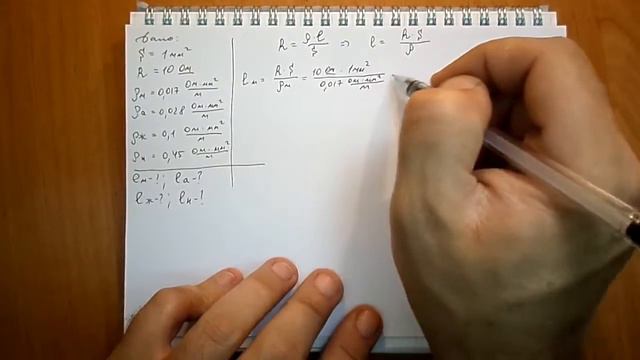 Дано:
S = 1 мм²
R = 10 Ом
ρм = 0,017 Ом·мм²/м
ρа = 0,028 Ом·мм²/м
ρж = 0,1 Ом·мм²/м
ρн = 0,45 Ом·мм²/м
lм-?; lа-?
lж-?; lн-?
R = ρl/S ⇒ l = R·S/ρ
lм = R·S/ρм = 10 Ом · 1мм²/0,017 Ом·мм²/м